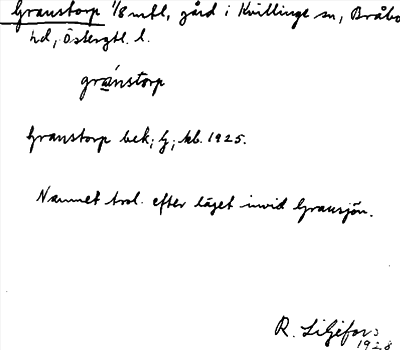 Granstorp 1/8 mtl, gård i Kvillinge sn, Bråbo
hd, Östergtl. l.
gránstorp
Granstorp bek; G; kb. 1925.
Namnet trol. efter läget invid Gransjön.
R. Liljefors
1928